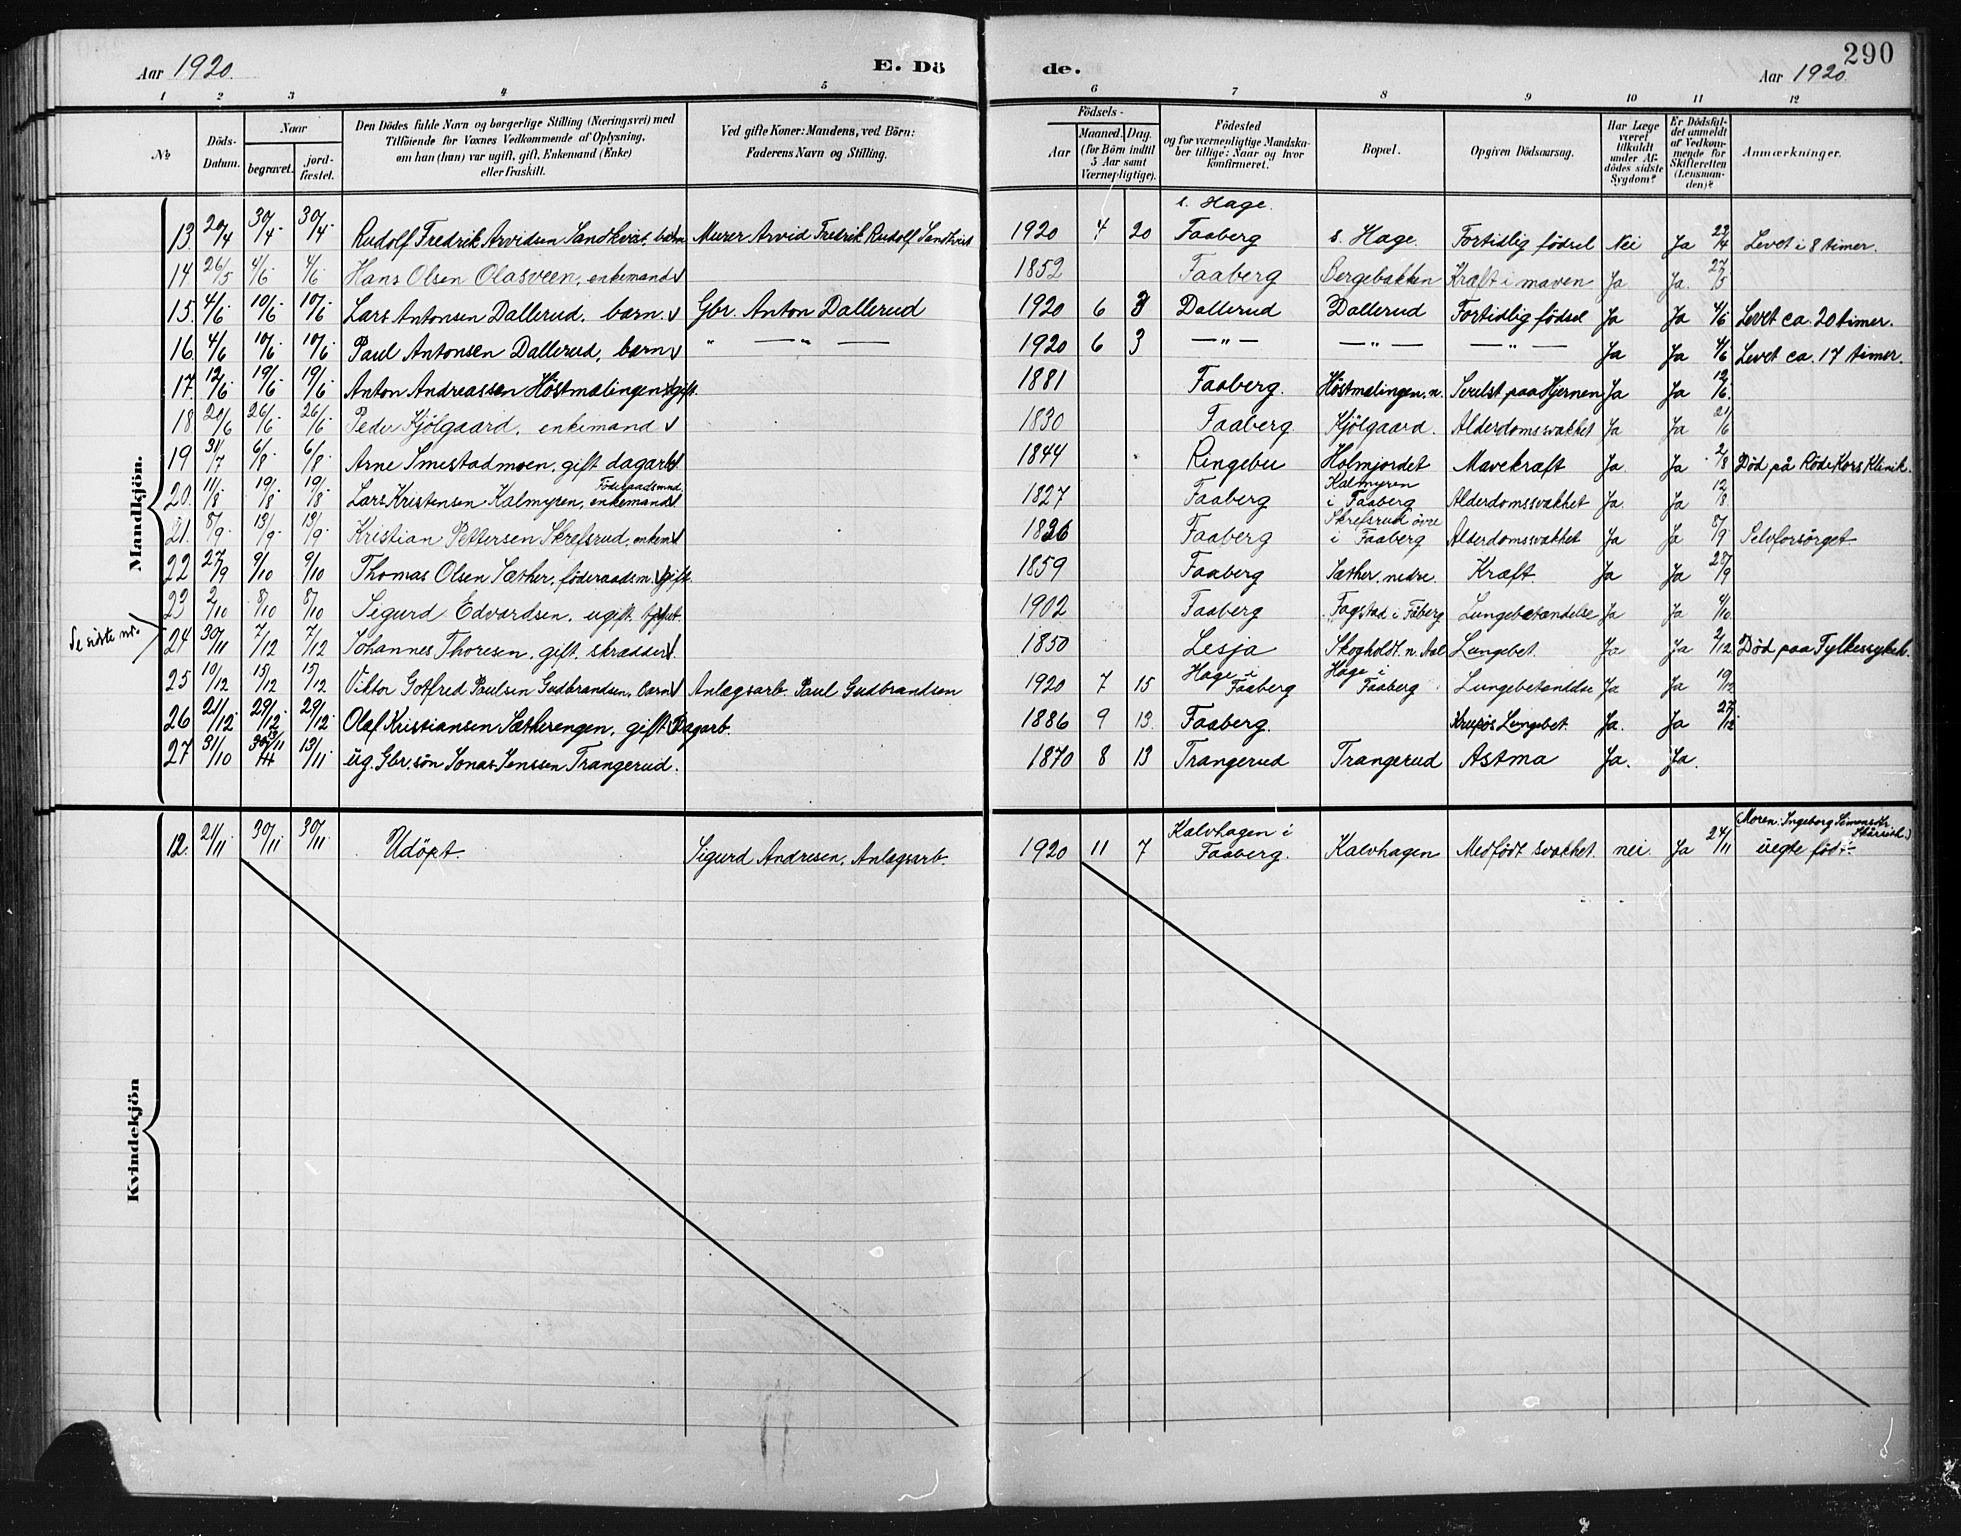 290
Aar 1920. E. Dö de. Aar 1920.
1 2 3 4 5 6 7 8 9 10 11 12
№ Döds-Datum. Naar begravet. jordfæstet. Den Dödes fulde Navn og borgerlige Stilling (Næringsvei) med Tilföiende for Voxnes Vedkommende af Oplysning, om han (hun) var ugift, gift, Enkemand (Enke) eller fraskilt. Ved gifte Koner: Mandens, ved Börn: Faderens Navn og Stilling. Födsels- Aar Maaned. Dag. (for Börn indtil 5 Aar samt Værnepligtige). Födested og for værnepligtige Mandskaber tillige: Naar og hvor konfirmeret. Bopæl. Opgiven Dödsaarsag. Har Læge været tilkaldt under Afdödes sidste Sygdom? Er Dödsfaldet anmeldt af Vedkommende for Skifteretten (Lensmanden)? Anmærkninger.
Mandkjön.
13 20/4 30/4 30/4 Rudolf Fredrik Arvidsen Sandkvist, barn Murer Arvid Fredrik Rudolf Sandkvist 1920 4 20 s. Hage. Faaberg s. Hage. Fortidlig födsel Nei Ja 22/4 Levet i 8 timer.
14 26/5 4/6 4/6 Hans Olsen Olasveen, enkemand 1852 Faaberg Bergebakken Kræft i maven Ja Ja. 27/5
15. 4/6 10/6 10/6 Lars Antonsen Dallerud, barn. Gbr. Anton Dallerud 1920 6 3 Dallerud Dallerud Fortidlig födsel Ja Ja 4/6 Levet ca. 20 timer.
16. 4/6 10/6 10/6 Paul Antonsen Dallerud, barn " — " — 1920 6 3 — " — — " — — " — Ja Ja 4/6 Levet ca. 17 timer.
17. 12/6 19/6 19/6 Anton Andreassen Höstmælingen gift. 1881 Faaberg. Höstmælingen. n. Svulst paa Hjernen Ja Ja 12/6.
18 20/6 26/6 26/6 Peder Kjölgaard, enkemand 1830 Faaberg Kjölgaard. Alderdomssvakhet Ja Ja 21/6
19 31/7 6/8 6/8 Arne Smestadmoen, gift dagarb. 1844 Ringebu Holmjordet Mavekræft Ja Ja 2/8 Död på Röde Kors Klinik.
20. 11/8 19/8 19/8 Lars Kristensen Kalmyren, enkemand Föderaadsmnd. 1827 Faaberg Kalmyren i Faaberg Alderdomssvakhet Ja Ja 12/8.
21. 8/9 13/9 13/9 Kristian Pettersen Skrefsrud, enkem. 1836 Faaberg Skrefsrud övre i Faaberg Alderdomssvakhet Ja Ja 8/9 Selvforsörget.
22 27/9 9/10 9/10 Thomas Olsen Sæther, föderaadsm. gift. 1859 Faaberg Sæther nedre. Kræft. Ja Ja 28/9
23 2/10 8/10 8/10 Sigurd Edvardsen, ugift. 1902 Faaberg Fagstad i Fåberg Lungebetændelse Ja Ja 4/10
Se sidste nr.
24 30/11 7/12 7/12 Johannes Thoresen, gift. skrædder. 1850 Lesja Skogholdt. n. Aal Lungebet. Ja Ja 2/12 Död paa Fylkessykeh.
25 10/12 15/12 15/12 Viktor Gotfred Paulsen Gudbrandsen, barn Anlægsarb. Paul Gudbrandsen 1920 7 15 Hage i Faaberg Hage i Faaberg Lungebetændelse Ja Ja 19/12
26 21/12 29/12 29/12 Olaf Kristiansen Sætherengen, gift Dagarb. 1886 9 13. Faaberg. Krupös Lungebet. Ja. Ja 27/12
27 31/10 13/11 13/11 ug. Gbr. sön Jonas Jenssen Trangerud. 1870 8 13 Trangerud Trangerud Astma Ja. Ja.
Kvindekjön
12. 21/11 30/11 30/11 Udöpt. Sigurd Andresen, Anlægsarb. 1920 11 7 Kalvhagen i Faaberg. Kalvhagen Medfödt svakhet. nei. Ja 24/11 (Moren: Ingeborg uegte födt